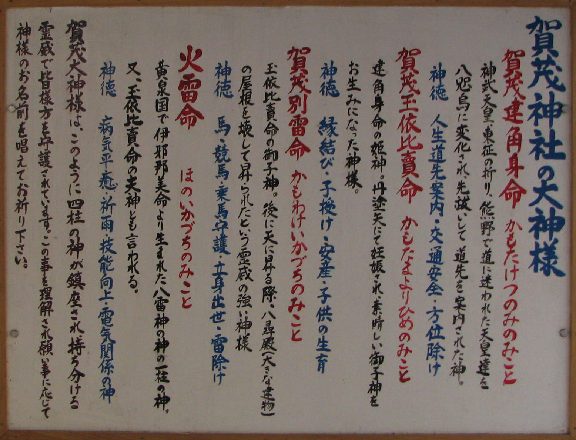 賀茂神社の大神様
賀茂建角身命 かもたけつのみのみこと
神武天皇、東征の折り、熊野で道に迷われた天皇達を
八咫烏に変化され先詠いして道先を案内された神。
神徳 人生道先案内・交通安全・方位除け
賀茂玉依比賣命 かもたまよりひめのみこと
建角身命の姫神。丹塗矢にて妊娠され素晴しい御子神を
お生みになった神様。
神徳 縁結び・子授け・安産・子供の生育
賀茂別雷命 かもわけいかづちのみこと
玉依比賣命の御子神。後に天に昇る際、八尋殿(大きな建物)
の屋根を壊して昇られたという霊威の強い神様
神徳 馬・競馬・乗馬守護・立身出世・雷除け
火雷命 ほのいかづちのみこと
黄泉国で伊邪那美命より生まれた八雷神の神の一柱の神。
又、玉依比賣命の夫神とも言われる。
神徳 病気平癒・祈雨・技能向上・電気関係の神
賀茂大神様は、このように四柱の神が鎮座され持ち分ける
霊威で皆様方を守護されています。この事を理解され願い事に応じて
神様のお名前を唱えてお祈り下さい。